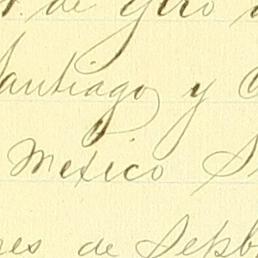 de Giro
Santiago y
Mexico
de Sepb